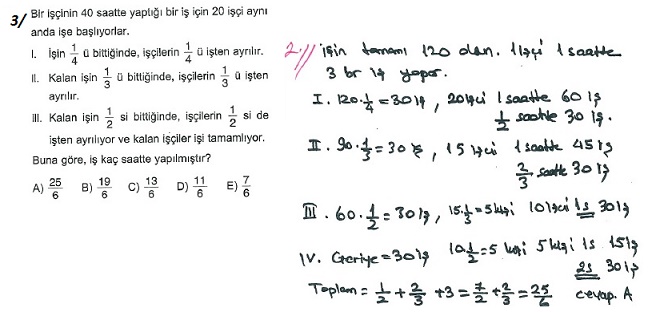 3/ Bir işçinin 40 saatte yaptığı bir iş için 20 işçi aynı
anda işe başlıyorlar.
I. İşin 1/4 ü bittiğinde, işçilerin 1/4 ü işten ayrılır.
II. Kalan işin 1/3 ü bittiğinde, işçilerin 1/3 ü işten
ayrılır.
III. Kalan işin 1/2 si bittiğinde, işçilerin 1/2 si de
işten ayrılıyor ve kalan işçiler işi tamamlıyor.
Buna göre, iş kaç saatte yapılmıştır?
A) 25/6 B) 19/6 C) 13/6 D) 11/6 E) 7/6
2// işin tamamı 120 olsun. 1 işçi 1 saatte
3 br iş yapar.
I. 120.1/4 = 30 iş, 20 işçi 1 saatte 60 iş
1/2 saatte 30 iş.
II. 90.1/3 = 30 iş, 15 işçi 1 saatte 45 iş
2/3 saatte 30 iş
III. 60.1/2 = 30 iş, 15.1/3 = 5 kişi 10 işçi 1s 30 iş
IV. Geriye = 30 iş 10.1/2 = 5 kişi 5 kişi 1s 15 iş
2s 30 iş
Toplam = 1/2 + 2/3 + 3 = 7/2 + 2/3 = 25/6 cevap. A